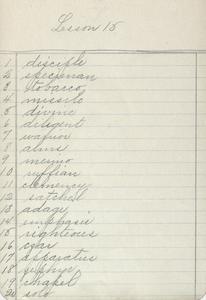 Lesson 15
1 disciple
2 specieman
3 tobacco
4 missile
5 divine
6 diligent
7 warrior
8 alms
9 memno
10 ruffian
11 clemency
12 satchel
13 adage
14 emphasis
15 righteous
16 czar
17 apparatus
18 zephyr
19 chapel
20 solo